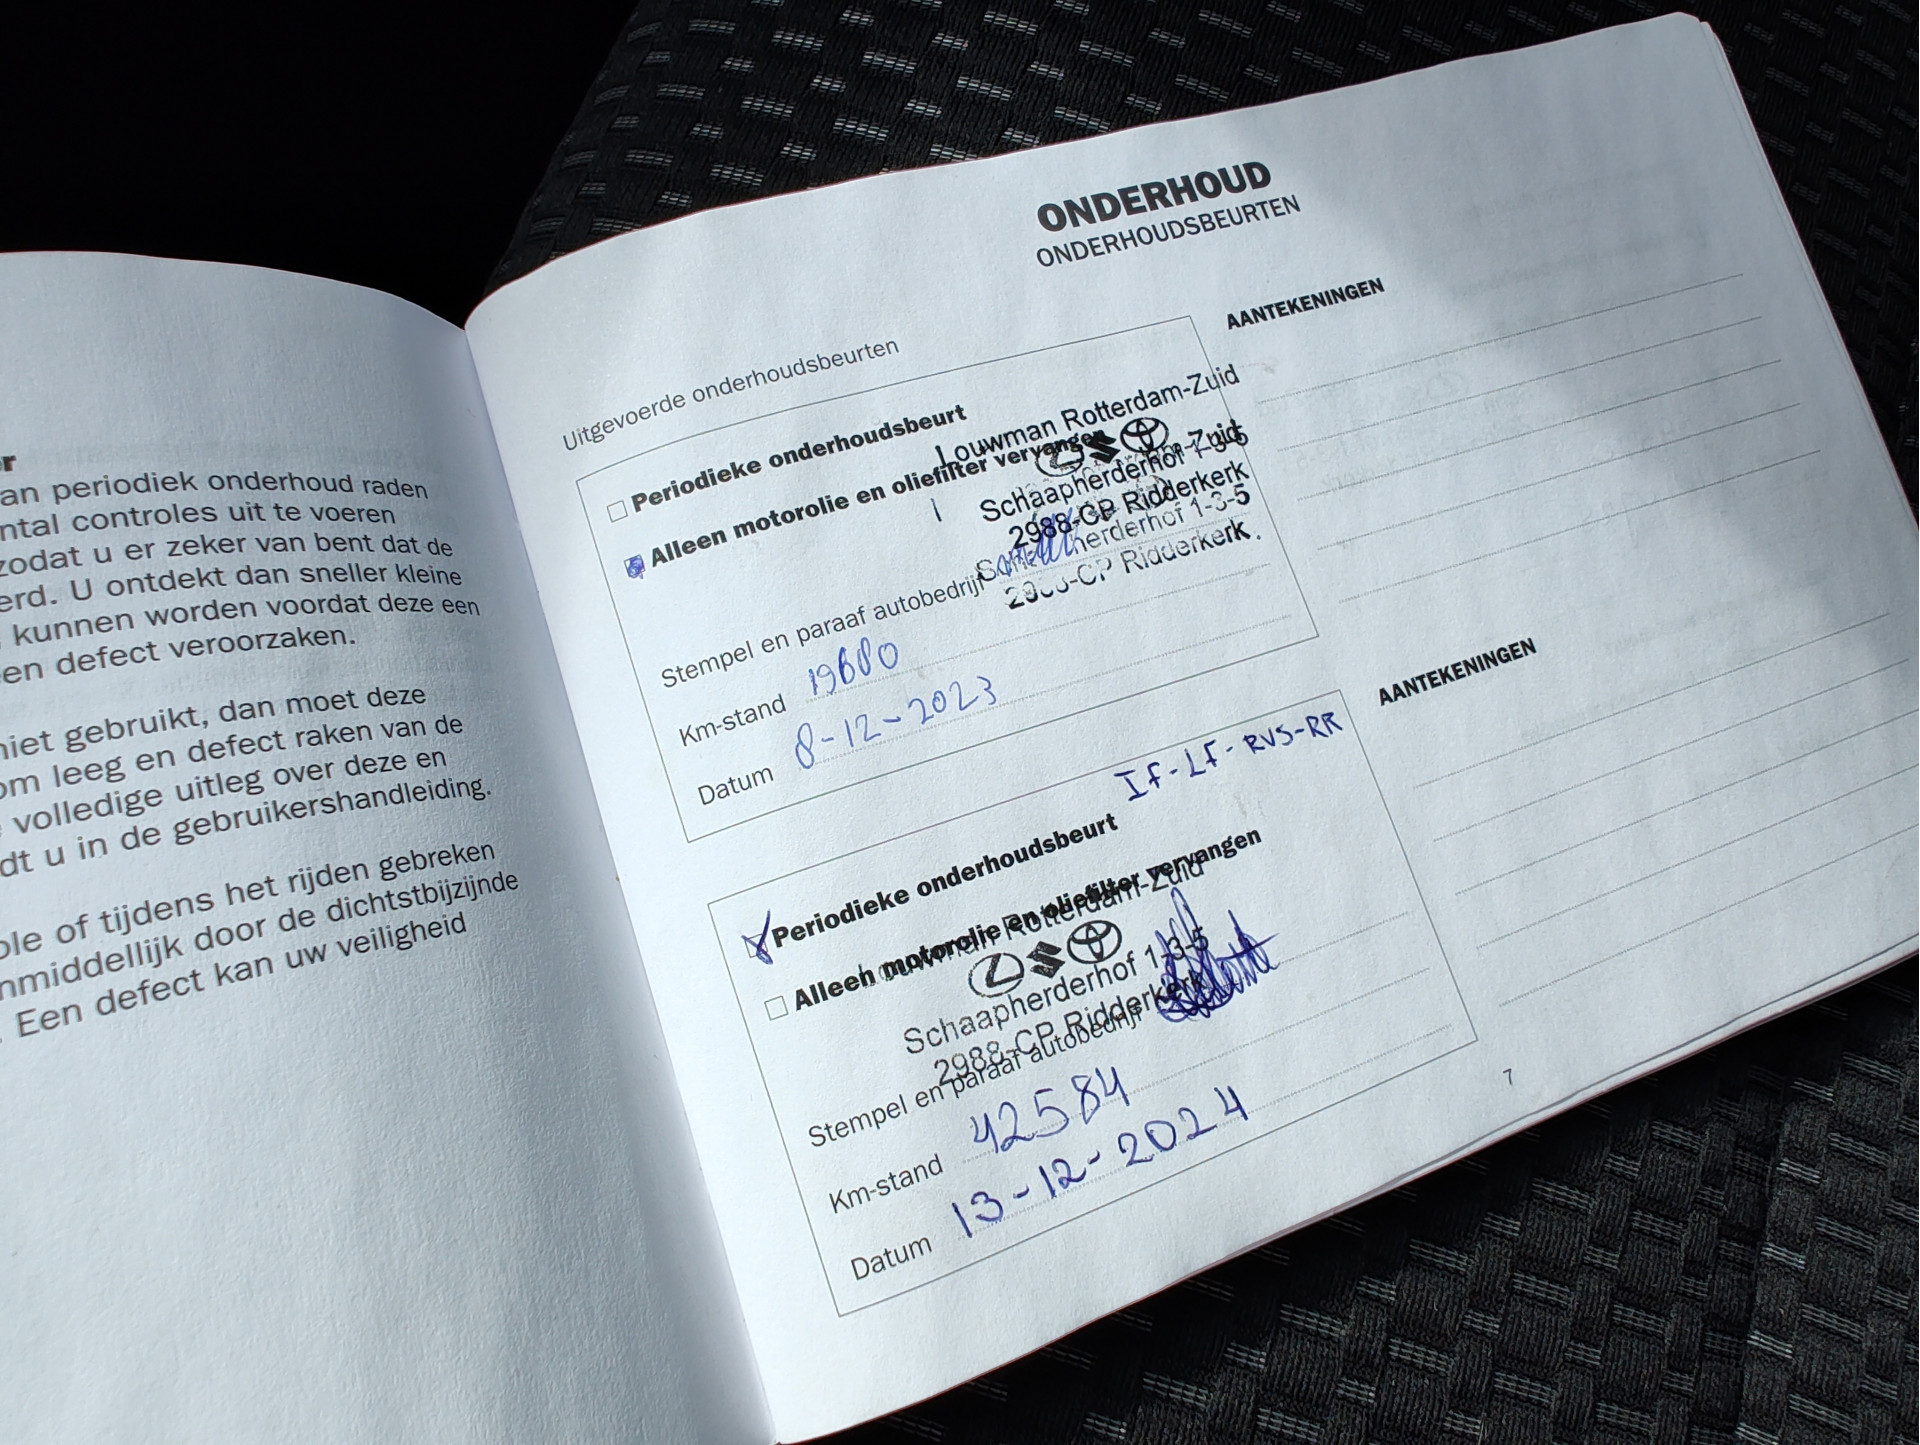 r
an periodiek onderhoud raden
ntal controles uit te voeren
zodat u er zeker van bent dat de
erd. U ontdekt dan sneller kleine
kunnen worden voordat deze een
en defect veroorzaken.
niet gebruikt, dan moet deze
om leeg en defect raken van de
volledige uitleg over deze en
dt u in de gebruikershandleiding.
ole of tijdens het rijden gebreken
nmiddellijk door de dichtstbijzijnde
. Een defect kan uw veiligheid
ONDERHOUD
ONDERHOUDSBEURTEN
Uitgevoerde onderhoudsbeurten
AANTEKENINGEN
Periodieke onderhoudsbeurt
Alleen motorolie en oliefilter vervangen
Louwman Rotterdam-Zuid
Schaapherderhof 1-3-5
2988-CP Ridderkerk
Zuid
herderhof 1-3-5
CP Ridderkerk.
Stempel en paraaf autobedrijf
Km-stand 19680
Datum 8-12-2023
AANTEKENINGEN
IF-LF-RVS-RR
Periodieke onderhoudsbeurt
Alleen motorolie en oliefilter vervangen
Louwman Rotterdam-Zuid
Schaapherderhof 1-3-5
2988-CP Ridderkerk
Stempel en paraaf autobedrijf
Km-stand 42584
Datum 13-12-2024
7